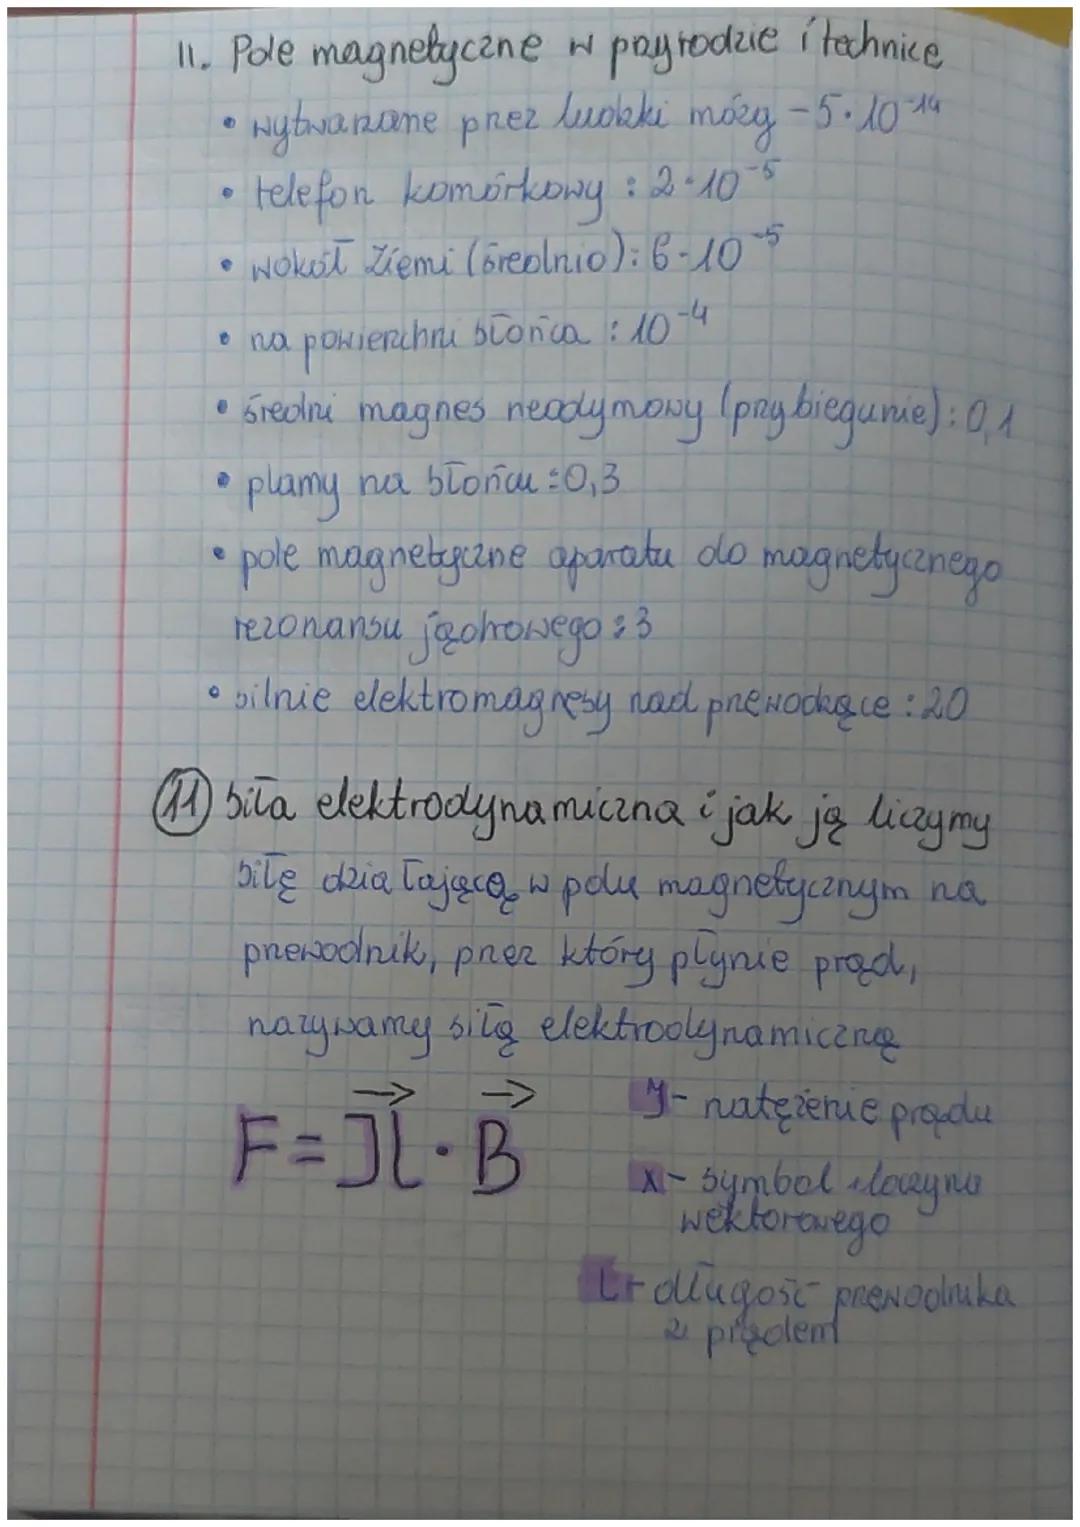 11. Pole magnetyczne w przyrodzie i technice
• wytwarzane przez ludzki mózg - 5·10⁻¹⁴
• telefon komórkowy : 2·10⁻⁵
• wokół Ziemi (średnio): 6·10⁻⁵
• na powierzchni słońca : 10⁻⁴
• średni magnes neodymowy (przy biegunie): 0,1
• plamy na słońcu : 0,3
• pole magnetyczne aparatu do magnetycznego
rezonansu jądrowego : 3
• silnie elektromagnesy nad przewodzące : 20
11 siła elektrodynamiczna i jak ją liczymy
siłę działającą w polu magnetycznym na
przewodnik, przez który płynie prąd,
nazywamy siłą elektrodynamiczną
F = Il · B
I - natężenie prądu
x - symbol iloczynu
wektorowego
L - długość przewodnika
z prądem